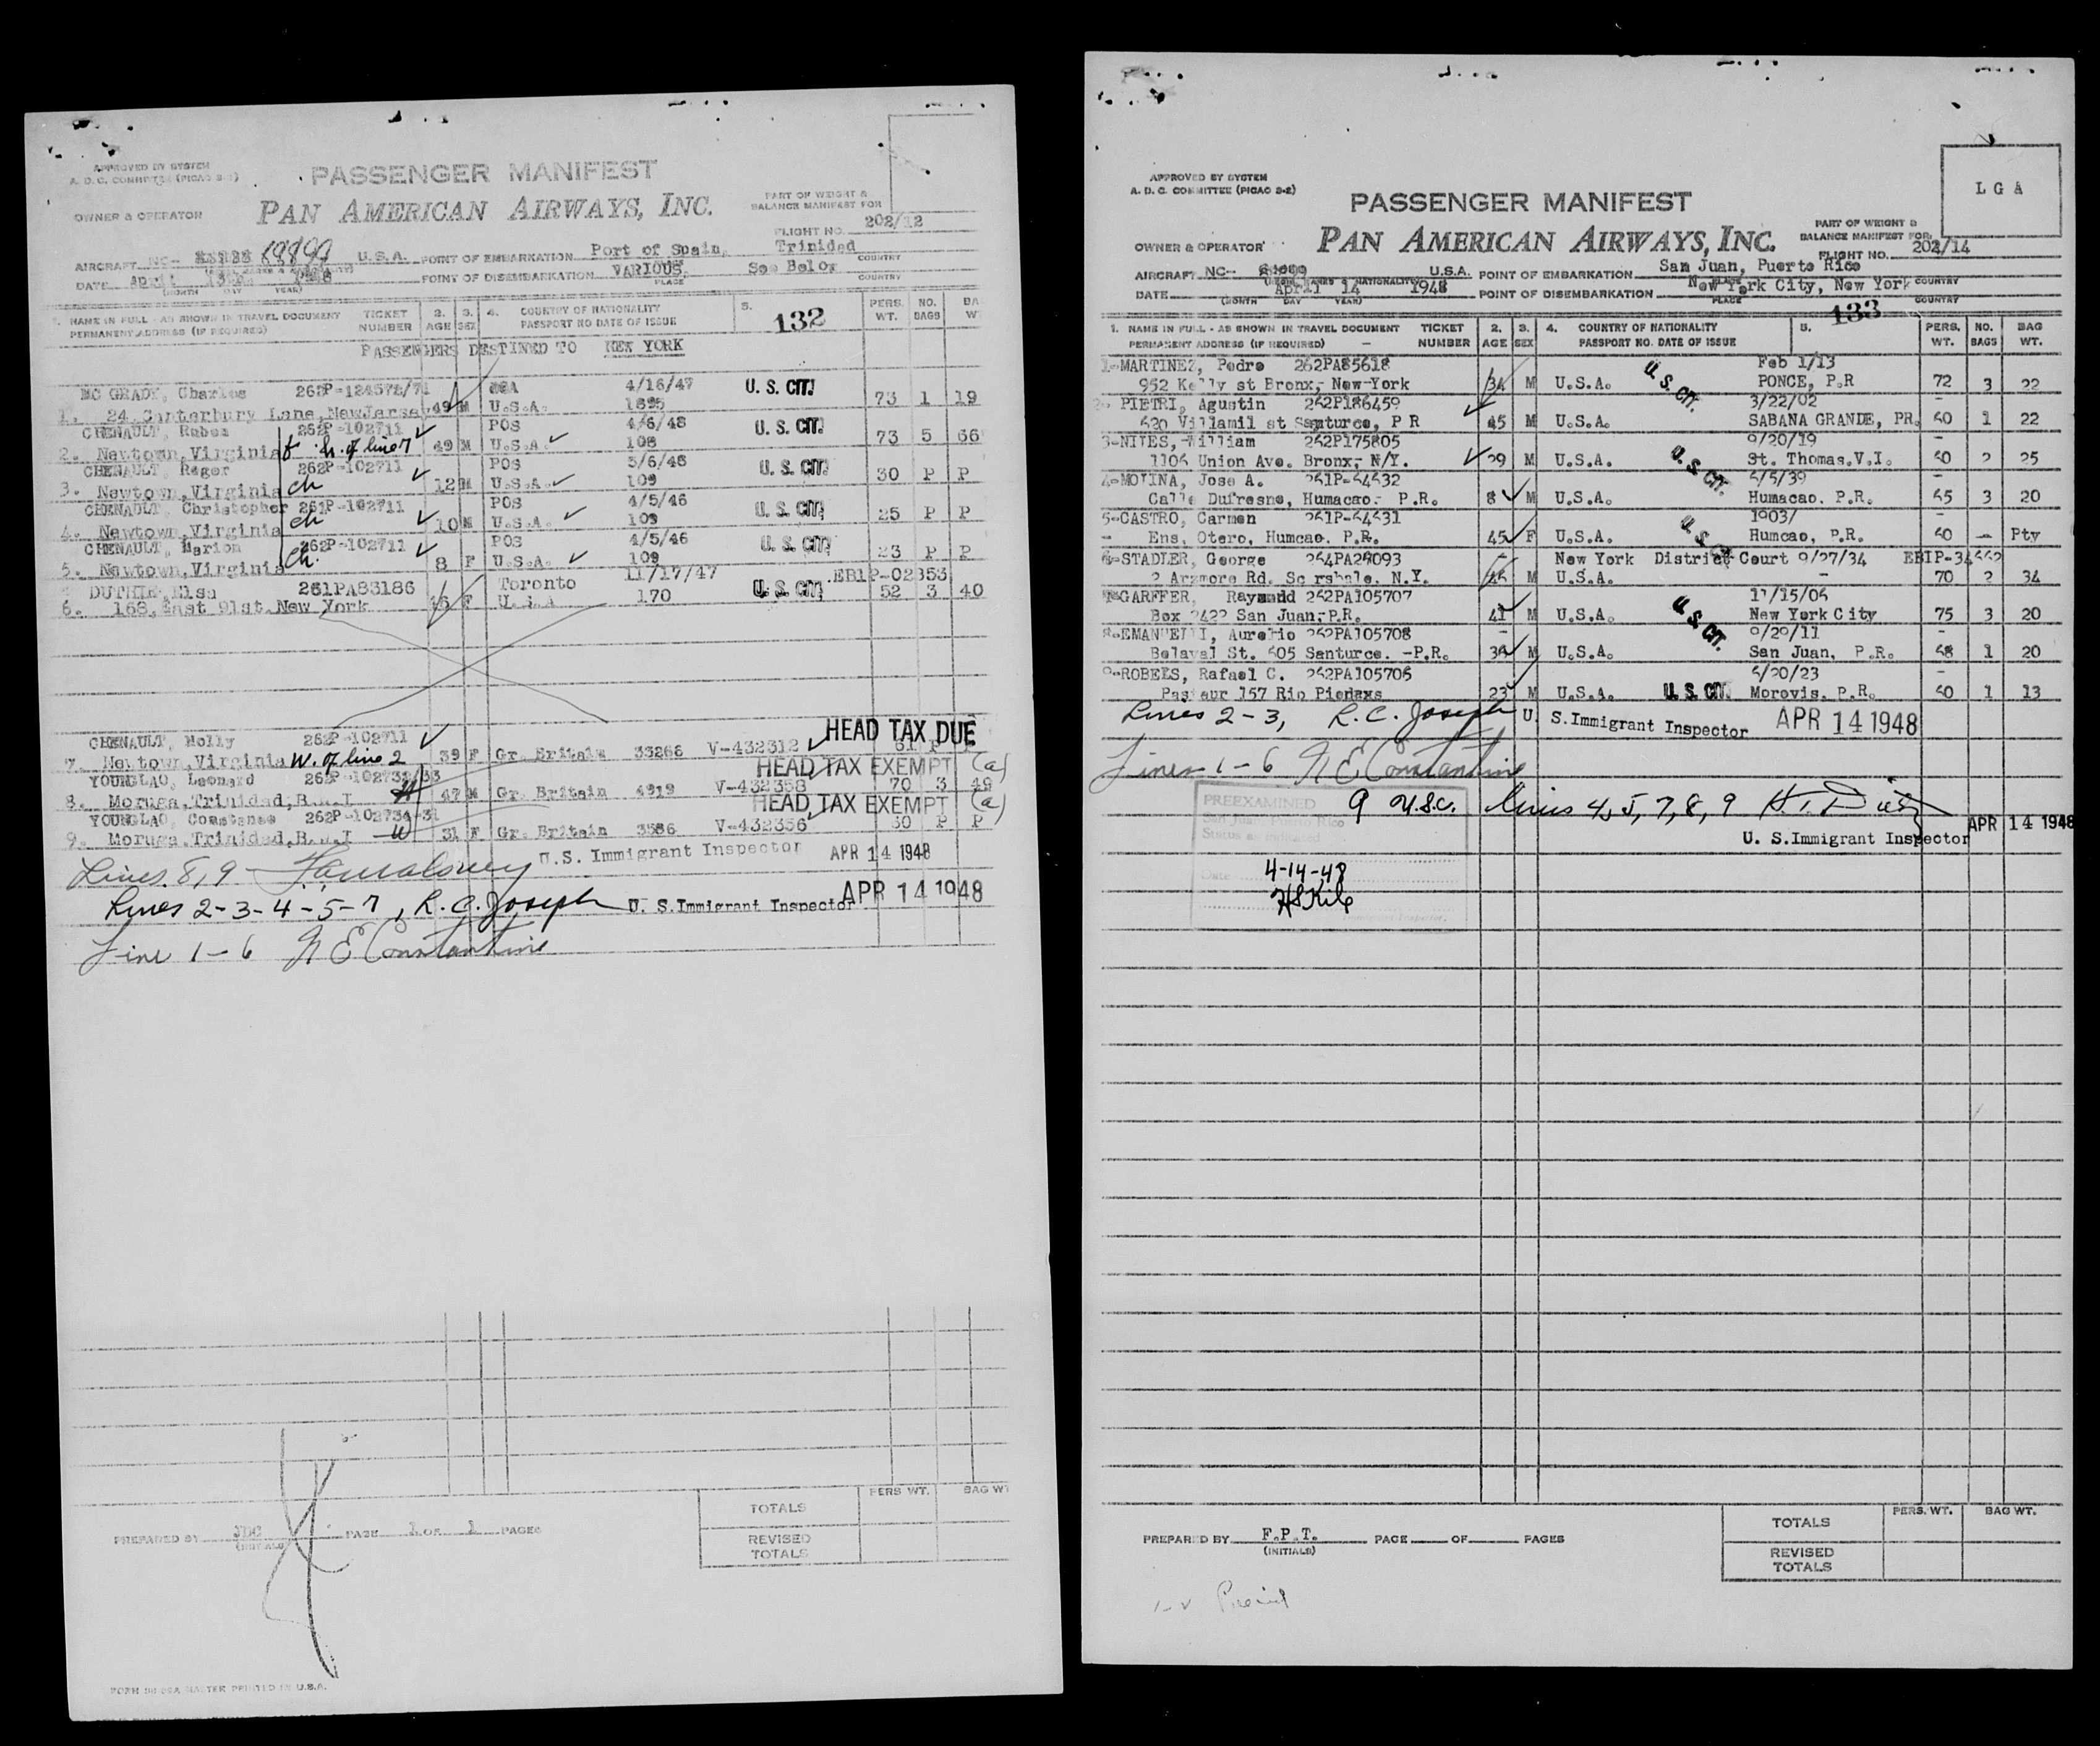 APPROVED BY SYSTEM
A. D. C. COMMITTEE (PICAO S-2)
PASSENGER MANIFEST
PART OF WEIGHT &
BALANCE MANIFEST FOR
OWNER & OPERATOR
PAN AMERICAN AIRWAYS, INC.
FLIGHT NO. 202/12
AIRCRAFT NC- U.S.A. POINT OF EMBARKATION Port of Spain, Trinidad
COUNTRY
DATE April POINT OF DISEMBARKATION VARIOUS. See Below
(MONTH DAY YEAR) PLACE COUNTRY
1. NAME IN FULL - AS SHOWN IN TRAVEL DOCUMENT TICKET 2. 3. 4. COUNTRY OF NATIONALITY 5. PERS. NO.
PERMANENT ADDRESS (IF REQUIRED) NUMBER AGE SEX PASSPORT NO DATE OF ISSUE 132 WT. BAGS
PASSENGERS DESTINED TO NEW YORK
MC GRADY, Charles 4/16/47 U. S. CIT.
1. 24 Canterbury Lane, New Jersey 49 M U.S.A. 73 1 19
CHENAULT, 262P-102711 POS 4/6/48 U. S. CIT.
2. Newtown, Virginia h. of line 7 49 M U.S.A. 108 73 5 66
CHENAULT, Roger 262P-102711 POS U. S. CIT.
3. Newtown, Virginia ch 12 M U.S.A. 109 30 P P
CHENAULT, Christopher 261P-102711 POS 4/5/46 U. S. CIT.
4. Newtown, Virginia ch 10 M U.S.A. 109 25 P P
CHENAULT, Marion 262P-102711 POS 4/5/46 U. S. CIT.
5. Newtown, Virginia ch. 8 F U.S.A. 109 23 P P
DUTHIE, Elsa 261PA83186 Toronto 11/17/47 EB1P-02853
6. 168, East 91st New York F U.S.A. 170 U. S. CIT. 52 3 40
CHENAULT, Molly 262P-102711 HEAD TAX DUE
7. Newtown, Virginia W. of line 2 39 F Gr. Britain 33268 V-432312 61 P
YOUNGLAO, Leonard HEAD TAX EXEMPT (a)
8. Moruga, Trinidad, B.W.I H 47 M Gr. Britain 4919 V-432358 70 3 49
YOUNGLAO, Constance 262P-102734-31 HEAD TAX EXEMPT (a)
9. Moruga, Trinidad, B.W.I W 31 F Gr. Britain 3586 V-432356 50 P P
Lines 8, 9 U.S. Immigrant Inspector APR 14 1948
Lines 2-3-4-5-7, R. C. Joseph U. S. Immigrant Inspector APR 14 1948
Line 1-6 N E Constantine
PERS WT. BAG WT
TOTALS
PREPARED BY JDC PAGE 1 OF 1 PAGES
(INITIALS)
REVISED
TOTALS
PRINTED IN U.S.A.
APPROVED BY SYSTEM
A. D. C. COMMITTEE (PICAO S-2)
LGA
PASSENGER MANIFEST
PART OF WEIGHT &
BALANCE MANIFEST FOR
OWNER & OPERATOR
PAN AMERICAN AIRWAYS, INC.
FLIGHT NO. 202/14
AIRCRAFT NC- U.S.A. POINT OF EMBARKATION San Juan, Puerto Rico
COUNTRY
DATE April 14 1948 POINT OF DISEMBARKATION New York City, New York
(MONTH DAY YEAR) PLACE COUNTRY
133
1. NAME IN FULL - AS SHOWN IN TRAVEL DOCUMENT TICKET 2. 3. 4. COUNTRY OF NATIONALITY 5. PERS. NO. BAG
PERMANENT ADDRESS (IF REQUIRED) NUMBER AGE SEX PASSPORT NO. DATE OF ISSUE WT. BAGS WT.
1-MARTINEZ, Pedro 262PA85618 Feb 1/13
952 Kelly st Bronx, New-York M U.S.A. U. S. CIT. PONCE, P.R 72 3 22
PIETRI, Agustin 262P186459 3/22/02
620 Villamil st Santurce, P R 45 M U.S.A. SABANA GRANDE, PR. 60 1 22
3-NITES, William 262P175805 9/20/19
1106 Union Ave. Bronx, N/Y. 29 M U.S.A. U. S. CIT. St. Thomas.V.I. 60 2 25
4-MOLINA, Jose A. 261P-64632 6/5/39
Calle Dufresne, Humacao. P.R. 8 M U.S.A. Humacao. P.R. 65 3 20
5-CASTRO, Carmen 261P-64631 1903/
Ens, Otero, Humcao. P.R. 45 F U.S.A. U. S. CIT. Humcao, P.R. 60 - Pty
6-STADLER, George New York District Court 9/27/34
M U.S.A. 70 2 34
7-GARFFER, Raymond 262PA105707 11/15/06
Box 2422 San Juan, P.R. 41 M U.S.A. U. S. CIT. New York City 75 3 20
8-EMANUELLI, Aurelio 262PA105708 9/20/11
Belaval St. 605 Santurce. -P.R. M U.S.A. San Juan, P.R. 68 1 20
9-ROBLES, Rafael C. 262PA105706 6/20/23
Pasteur 157 Rio Piedras 23 M U.S.A. U. S. CIT. Morovis. P.R. 60 1 13
Lines 2-3, R. C. Joseph U. S. Immigrant Inspector APR 14 1948
Lines 1-6 N E Constantine
PREEXAMINED
San Juan, Puerto Rico
Status as indicated
9 U.S.C. Lines 4, 5, 7, 8, 9
U. S. Immigrant Inspector APR 14 1948
Date 4-14-48
PERS. WT. BAG WT.
TOTALS
PREPARED BY F.P.T. PAGE OF PAGES
(INITIALS)
REVISED
TOTALS